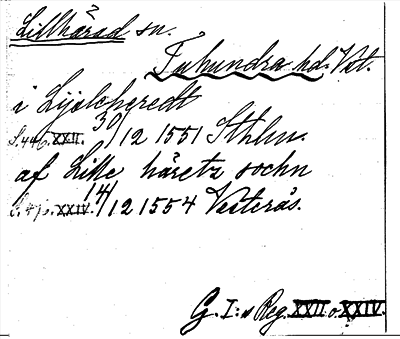 Lillhärad sn.
2
Tuhundra hd. Vstm.
i Lyslehæredt
S. 446. XXII. 30/12 1551 Sthlm.
af Litle häretz sochn
S. XXIV. 14/12 1554 Vesterås.
G. I:s Reg. XXII o. XXIV.